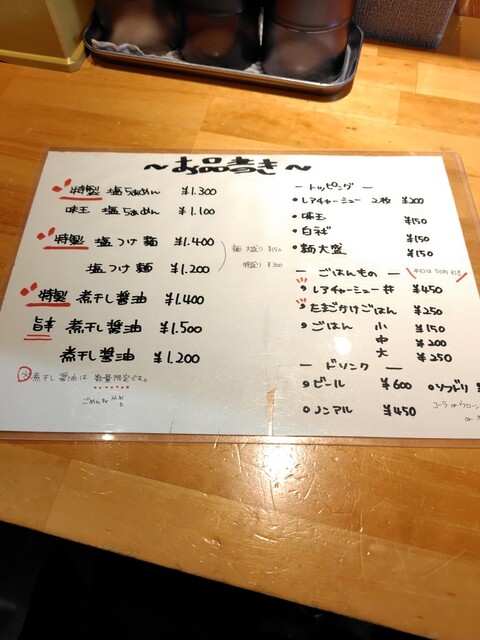 〜お品書き〜
特製 塩らぁめん ¥1.300
味玉 塩らぁめん ¥1.100
特製 塩つけ麺 ¥1.400
塩つけ麺 ¥1.200
麺大盛り ¥150
特盛り ¥300
特製 煮干し醤油 ¥1.400
旨辛 煮干し醤油 ¥1.500
煮干し醤油 ¥1.200
煮干し醤油は 数量限定です。
ごめんね
ー トッピング ー
・レアチャーシュー 2枚 ¥200
・味玉 ¥150
・白ネギ ¥150
・麺大盛 ¥150
ー ごはんもの ー
平日は 50円引き
・レアチャーシュー丼 ¥450
・たまごかけごはん ¥250
・ごはん 小 ¥150
中 ¥200
大 ¥250
ー ドリンク ー
○ビール ¥600
○ノンアル ¥450
○ソフトドリ
コーラ or ウーロン
or